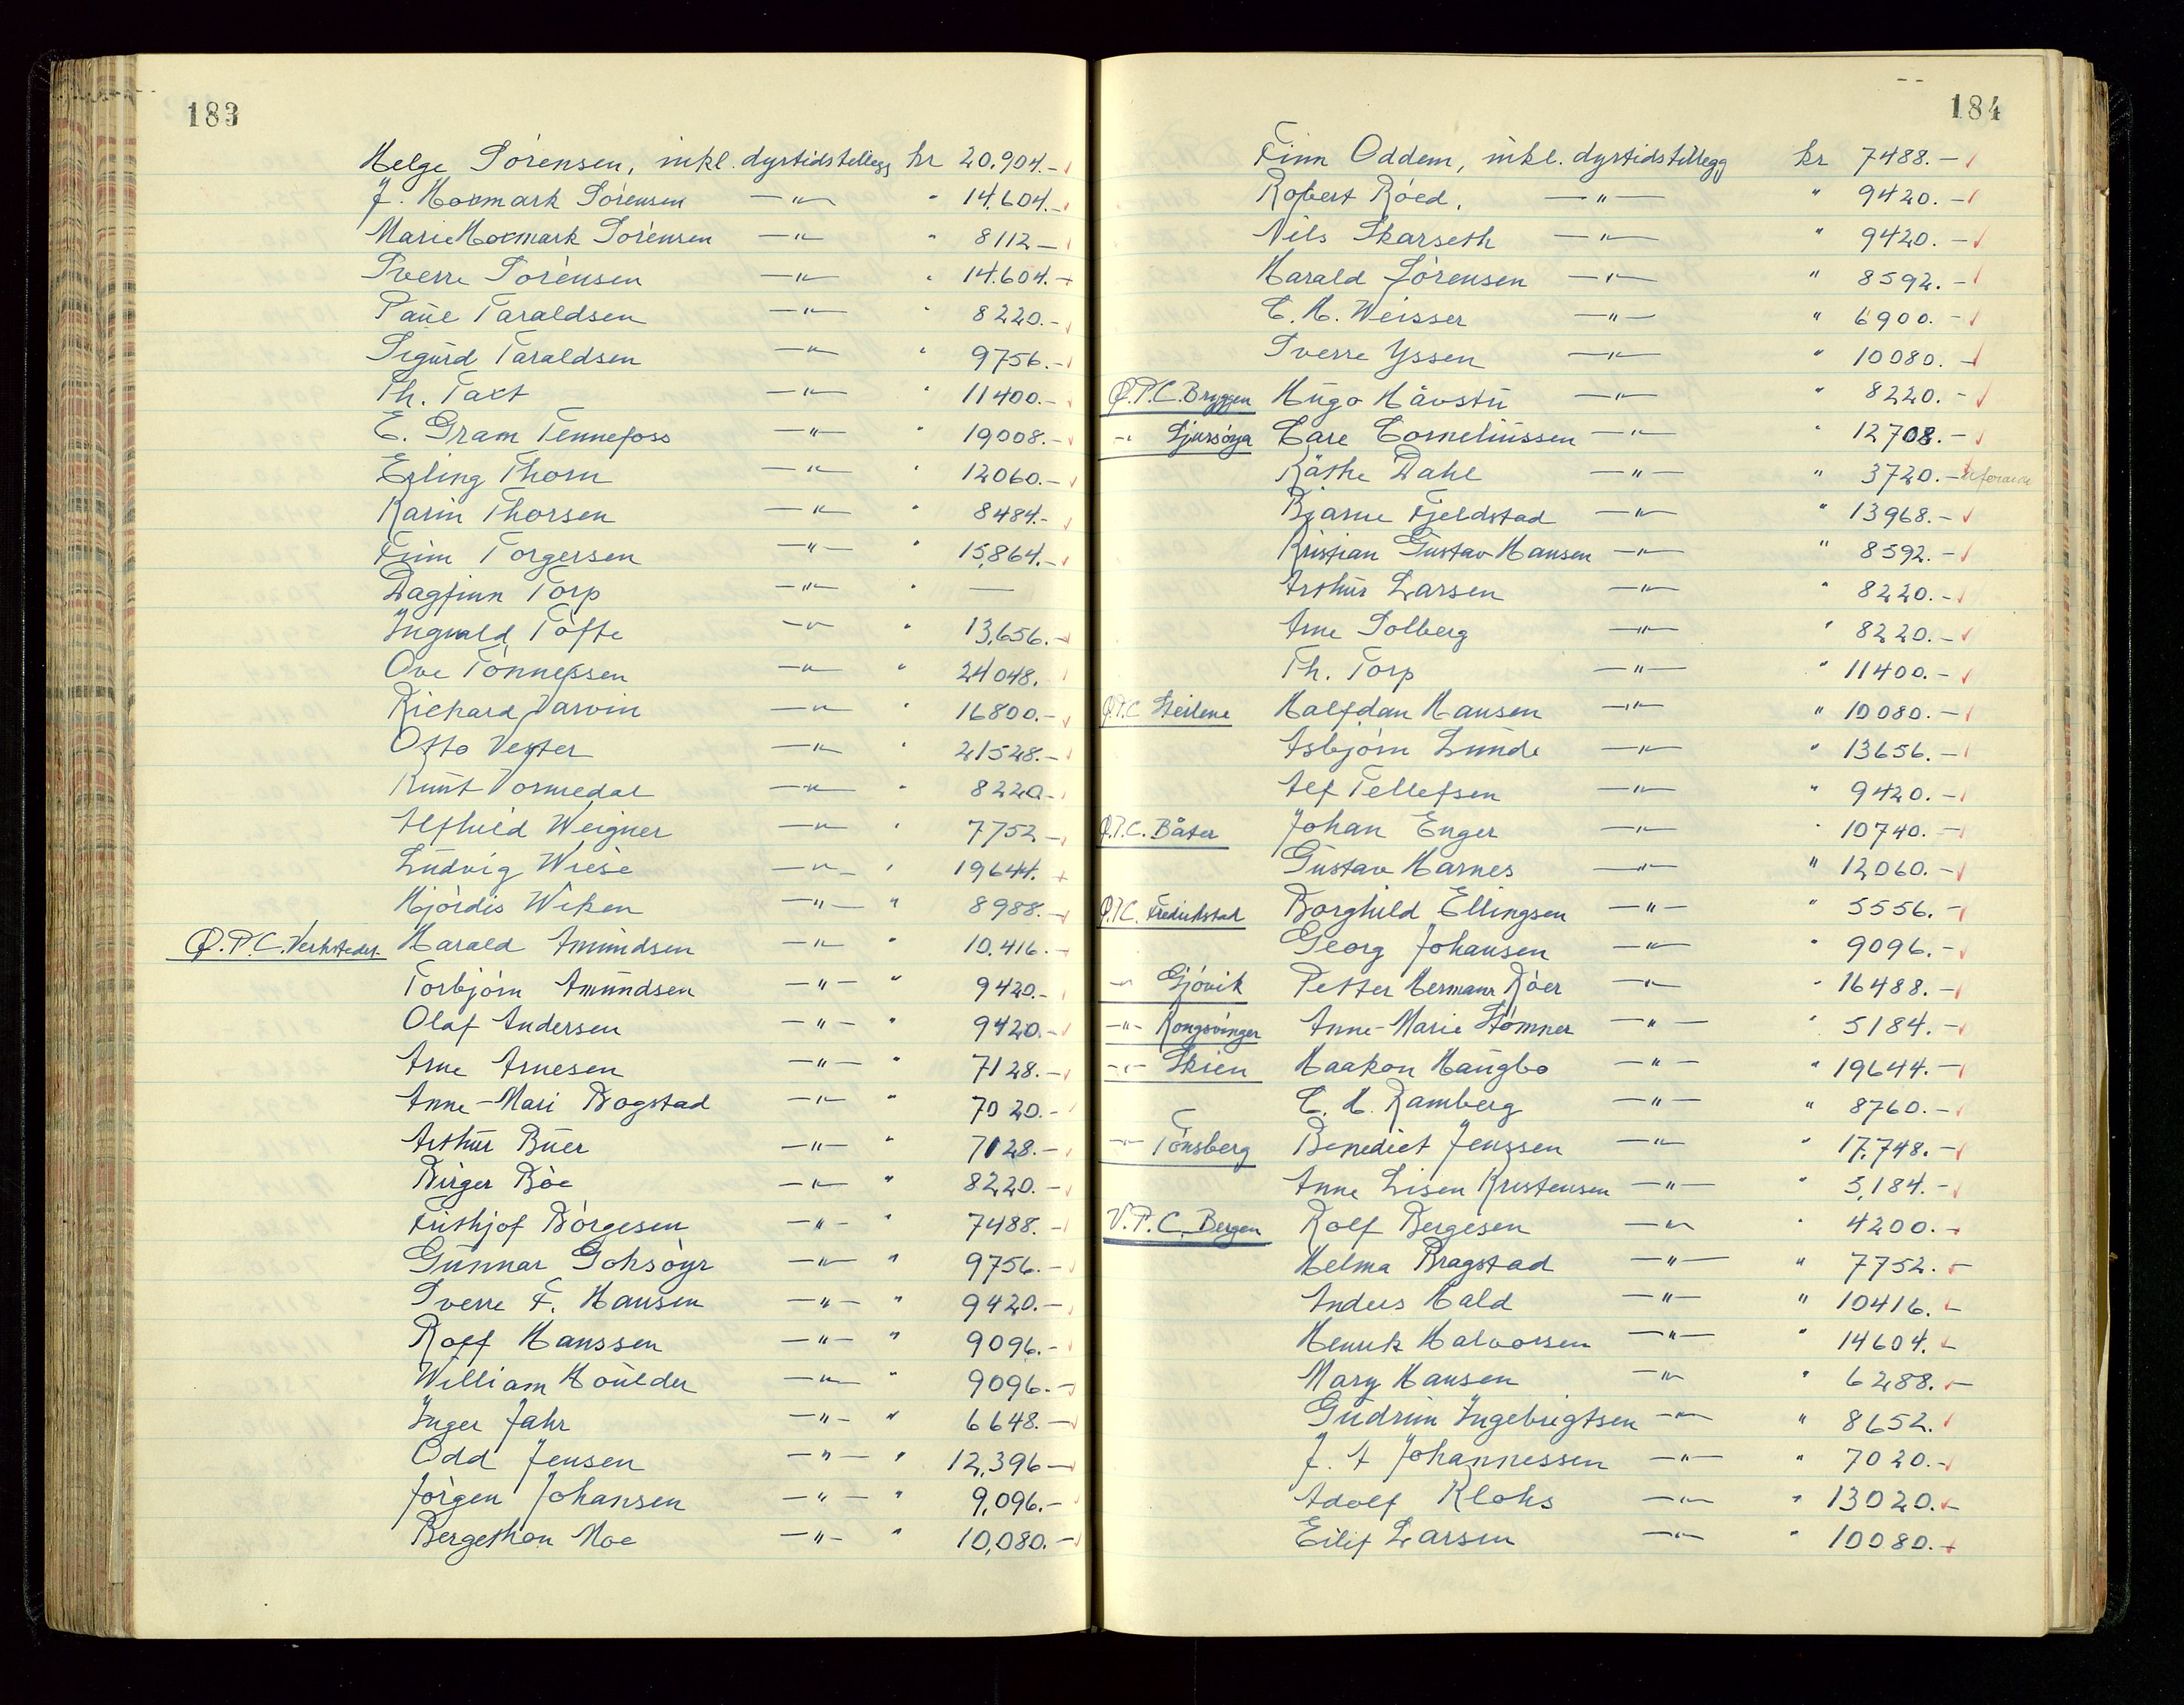 183
Helge Sörensen, inkl. dyrtidstillegg kr 20.904.-
J. Hormark Sörensen -"- " 14.604.-
Marie Hormark Sörensen -"- " 8112-
Sverre Sörensen -"- " 14.604.-
Paul Taraldsen -"- " 8220.-
Sigurd Taraldsen -"- " 9756.-
Th. Taxt -"- " 11400.-
E. Gram Tennefoss -"- " 19008.-
Erling Thorn -"- " 12060.-
Karin Thorsen -"- " 8484.-
Finn Torgersen -"- " 15,864.-
Dagfinn Torp -"- " —
Ingvald Töfte -"- " 13,656.-
Ove Tönnessen -"- " 24048.
Richard Varvin -"- " 16800.-
Otto Vester -"- " 21528.-
Knut Vormedal -"- " 8220-
Alfhild Weigner -"- " 7752-
Ludvig Wiese -"- " 19644.
Hjördis Wiken -"- " 8988.-
Ö.P.C. Verksteder Harald Amundsen -"- " 10.416.-
Torbjörn Amundsen -"- " 9420.-
Olaf Andersen -"- " 9420.-
Arne Arnesen -"- " 7128.-
Anne-Mari Bogstad -"- " 7020.-
Arthur Buer -"- " 7128.-
Birger Böe -"- " 8220.-
Frithjof Börgesen -"- " 7488.-
Gunnar Gohsöyr -"- " 9756.-
Sverre F. Hansen -"- " 9420.-
Rolf Hanssen -"- " 9096.-
William Houlder -"- " 9096.-
Inger Jahr -"- " 6648.-
Odd Jensen -"- " 12,396-
Jörgen Johansen -"- " 9,096.-
Bergethon Moe -"- " 10,080.-
184
Finn Oddem, inkl. dyrtidstillegg kr 7488.-
Robert Röed, -"- " 9420.-
Nils Skarseth -"- " 9420.-
Harald Sörensen -"- " 8592.-
C. H. Weisser -"- " 6900.-
Sverre Yssen -"- " 10080.-
Ö.P.C. Bryggen Hugo Håvstu -"- " 8220.-
-"- Sjursöya Care Corneliussen -"- " 12708.-
Käthe Dahl -"- " 3720.-
Bjarne Fjeldstad -"- " 13968.-
Kristian Gustav Hansen -"- " 8592.-
Arthur Larsen -"- " 8220.-
Arne Solberg -"- " 8220.-
Th. Torp -"- " 11400.-
Ö.P.C Steilene Halfdan Hansen -"- " 10080.-
Asbjörn Lunde -"- " 13656.-
Alf Tellefsen -"- " 9420.-
Ö.P.C. Båter Johan Enger -"- " 10740.-
Gustav Harnes -"- " 12060.-
Ö.P.C. Fredrikstad Borghild Ellingsen -"- " 5556.-
Georg Johansen -"- " 9096.-
-"- Gjövik Petter Hermann Röer -"- " 16488.-
-"- Kongsvinger Anne-Marie Stömner -"- " 5184.-
-"- Skien Haakon Haugbo -"- " 19644.-
C. H. Ramberg -"- " 8760.-
-"- Tönsberg Benedict Jenssen -"- " 17,748.-
Anne Lisen Kristensen -"- " 5,184.-
V.P.C. Bergen Rolf Bergesen -"- " 4200.-
Helma Bragstad -"- " 7752.-
Anders Hald -"- " 10416.-
Henrik Halvorsen -"- " 14604.-
Mary Hansen -"- " 6288.-
Gudrun Ingebrigtsen -"- " 8652.
J. A Johannessen -"- " 7020.-
Adolf Klohs -"- " 13020.-
Eilif Larsen -"- " 10080.-